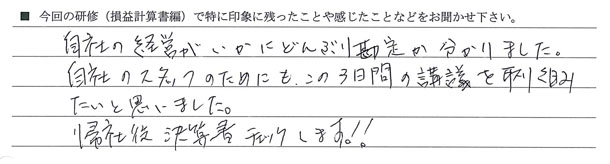 ■ 今回の研修（損益計算書編）で特に印象に残ったことや感じたことなどをお聞かせ下さい。
自社の経営がいかにどんぶり勘定か分かりました。
自社のスタッフのためにも、この3日間の講議を取り組み
たいと思いました。
帰社後 決算書チェックします!!